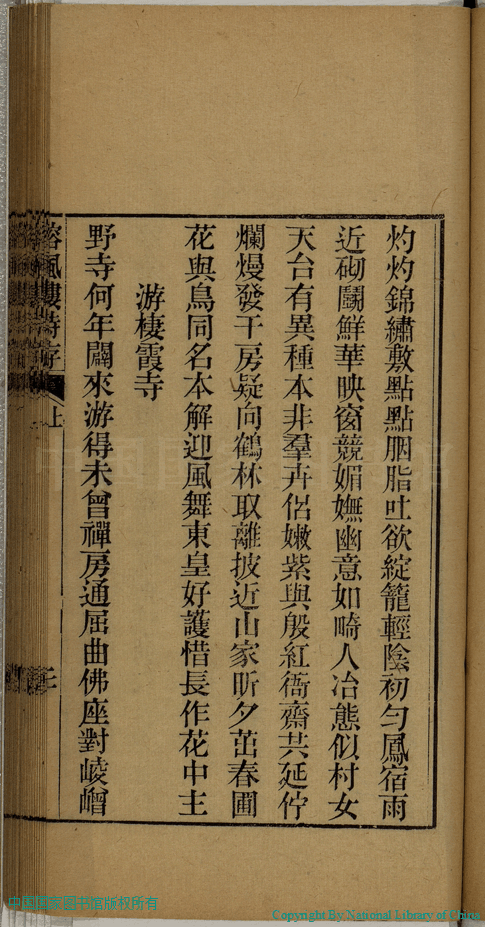 灼灼錦繡敷點點胭脂吐欲綻籠輕陰初勻鳳宿雨
近砌鬭鮮華映窗競媚嫵幽意如畸人冶態似村女
天台有異種本非羣卉侶嫩紫與殷紅衙齋共延佇
爛熳發千房疑向鶴林取離披近山家昕夕茁春圃
花與鳥同名本解迎風舞東皇好護惜長作花中主
游棲霞寺
野寺何年闢來游得未曾禪房通屈曲佛座對崚嶒
樓詩存
上
中国国家图书馆版权所有
Copyright By National Library of China